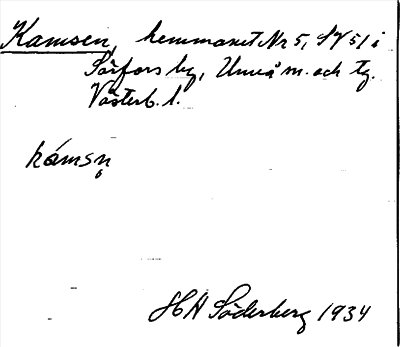 Kamsen, hemmanet Nr 5, SV 51 i
Sörfors by, Umeå m. och tg.
Västerb. l.
kámsn̥
HA Söderberg 1934